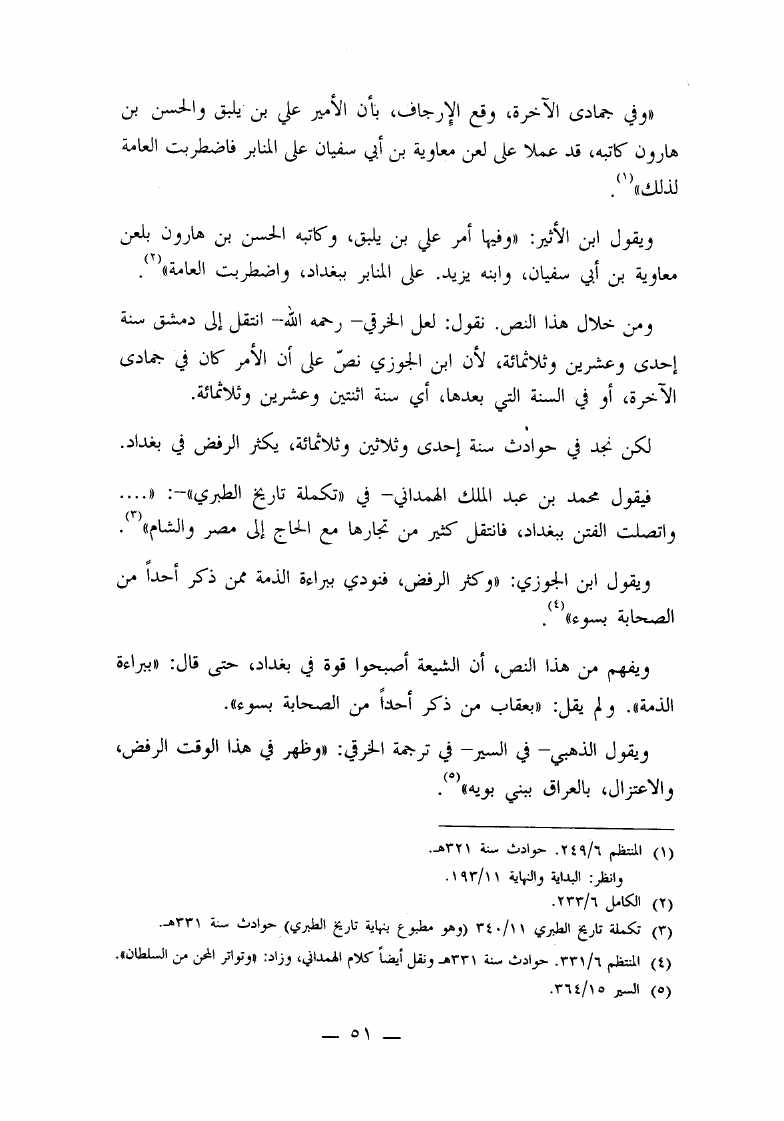 «وفي جمادى الآخرة، وقع الإرجاف، بأن الأمير علي بن يلبق والحسن بن
هارون كاتبه، قد عملا على لعن معاوية بن أبي سفيان على المنابر فاضطربت العامة
لذلك»(١).
ويقول ابن الأثير: «وفيها أمر علي بن يلبق، وكاتبه الحسن بن هارون بلعن
معاوية بن أبي سفيان، وابنه يزيد. على المنابر ببغداد، واضطربت العامة»(٢).
ومن خلال هذا النص. نقول: لعل الخرقي– رحمه الله– انتقل إلى دمشق سنة
إحدى وعشرين وثلاثمائة، لأن ابن الجوزي نصّ على أن الأمر كان في جمادى
الآخرة، أو في السنة التي بعدها، أي سنة اثنتين وعشرين وثلاثمائة.
لكن نجد في حوادث سنة إحدى وثلاثين وثلاثمائة، يكثر الرفض في بغداد.
فيقول محمد بن عبد الملك الهمداني– في «تكملة تاريخ الطبري»–: «....
واتصلت الفتن ببغداد، فانتقل كثير من تجارها مع الحاج إلى مصر والشام»(٣).
ويقول ابن الجوزي: «وكثر الرفض، فنودي ببراءة الذمة ممن ذكر أحداً من
الصحابة بسوء»(٤).
ويفهم من هذا النص، أن الشيعة أصبحوا قوة في بغداد، حتى قال: «ببراءة
الذمة». ولم يقل: «بعقاب من ذكر أحداً من الصحابة بسوء».
ويقول الذهبي– في السير– في ترجمة الخرقي: «وظهر في هذا الوقت الرفض،
والاعتزال، بالعراق ببني بويه»(٥).
(١) المنتظم ٢٤٩/٦. حوادث سنة ٣٢١هـ.
وانظر: البداية والنهاية ١٩٣/١١.
(٢) الكامل ٢٣٣/٦.
(٣) تكملة تاريخ الطبري ٣٤٠/١١ (وهو مطبوع بنهاية تاريخ الطبري) حوادث سنة ٣٣١هـ.
(٤) المنتظم ٣٣١/٦. حوادث سنة ٣٣١هـ ونقل أيضاً كلام الهمداني، وزاد: «وتواتر المحن من السلطان».
(٥) السير ٣٦٤/١٥.
— ٥١ —